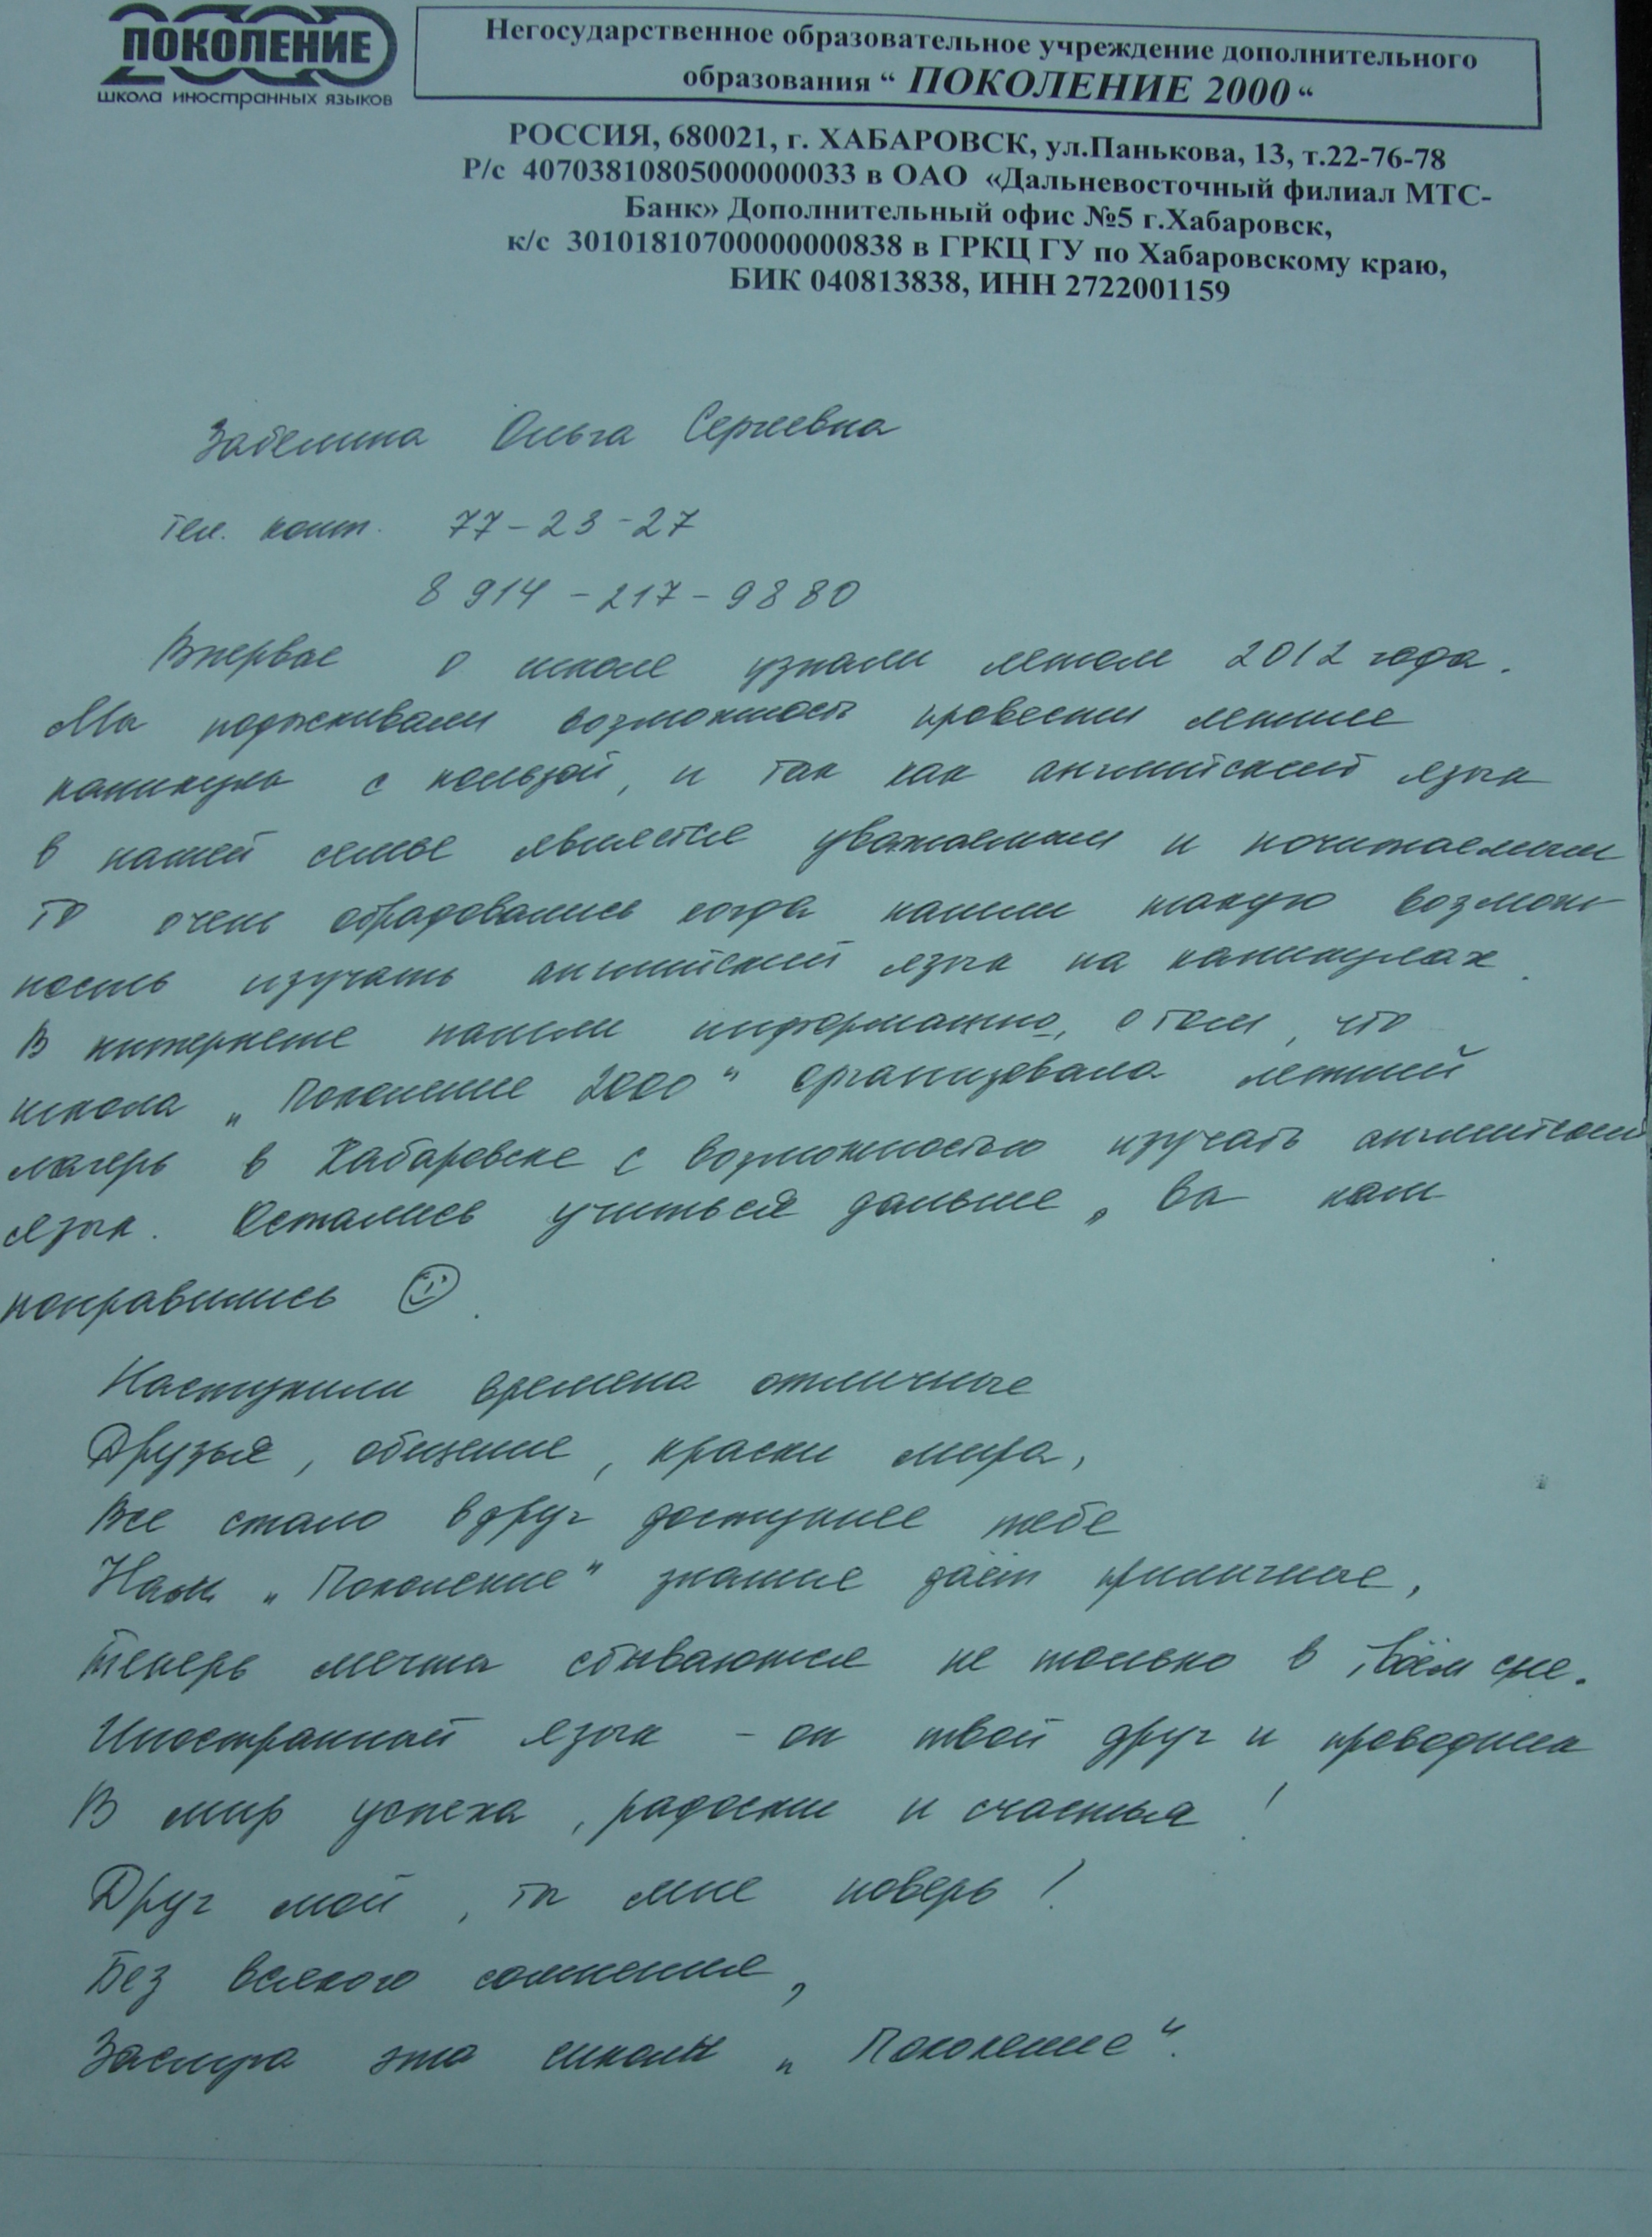 ПОКОЛЕНИЕ
2000
школа иностранных языков
Негосударственное образовательное учреждение дополнительного
образования “ ПОКОЛЕНИЕ 2000 “
РОССИЯ, 680021, г. ХАБАРОВСК, ул.Панькова, 13, т.22-76-78
Р/с 40703810805000000033 в ОАО «Дальневосточный филиал МТС-
Банк» Дополнительный офис №5 г.Хабаровск,
к/с 30101810700000000838 в ГРКЦ ГУ по Хабаровскому краю,
БИК 040813838, ИНН 2722001159
Забелина Ольга Сергеевна
Тел. конт. 77-23-27
8 914-217-9880
Впервые о школе узнали летом 2012 года.
Мы подыскивали возможность провести летние
каникулы с пользой, и так как английский язык
в нашей семье является уважаемым и почитаемым
то очень обрадовались когда нашли такую возмож-
ность изучать английский язык на каникулах.
В интернете нашли информацию, о том, что
школа „Поколение 2000“ организовала летний
лагерь в Хабаровске с возможностью изучать английский
язык. Остались учиться дальше, Вы нам
понравились ☺.
Наступили времена отличные
Друзья, общение, краски мира,
Все стало вдруг доступнее тебе
Нам „Поколение“ знание даёт приличные,
Теперь мечты сбываются не только в твоём сне.
Иностранный язык - он твой друг и проводник
В мир успеха, радости и счастья!
Друг мой, ты мне поверь!
Без всякого сомнения,
Заслуга эта школы „Поколение“.